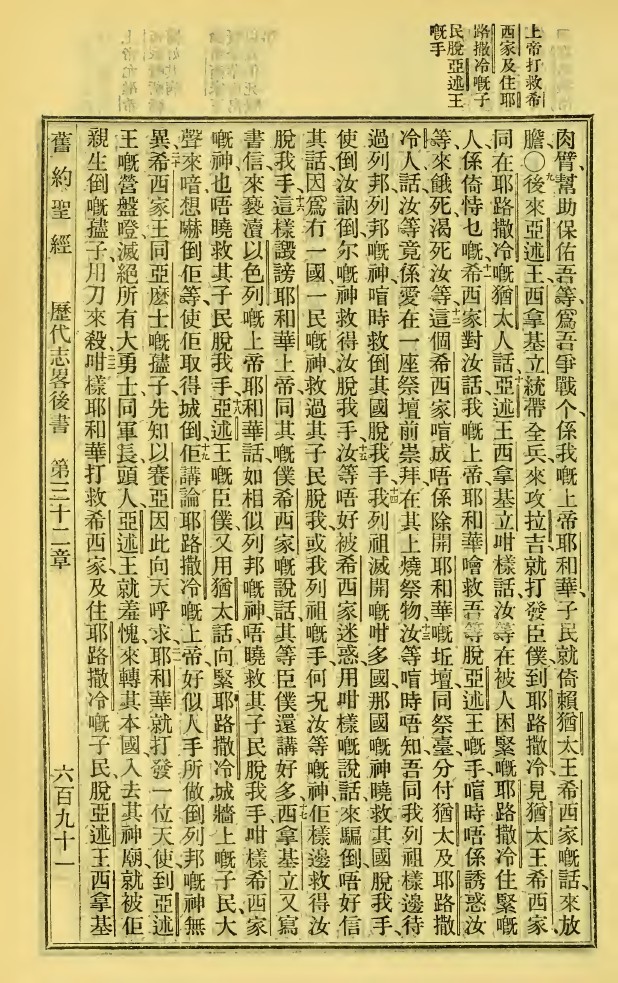 上帝打救希
西家及住耶
路撒冷嘅子
民脫亞述王
嘅手
肉臂、幫助保佑吾等、爲吾爭戰个、係我嘅上帝耶和華、子民就倚賴猶太王希西家嘅話、來放
膽、〇九後來亞述王西拿基立統帶全兵、來攻拉吉、就打發臣僕到耶路撒冷、見猶太王希西家、
同在耶路撒冷嘅猶太人話、十亞述王西拿基立咁樣話、汝等在被人困緊嘅耶路撒冷住緊嘅
人、係倚恃乜嘅、十一希西家對汝話、我嘅上帝耶和華噲救吾等脫亞述王嘅手、喧時唔係誘惑汝
等、來餓死渴死汝等、十二這個希西家喧成唔係除開耶和華嘅坵壇同祭臺、分付猶太及耶路撒
冷人話、汝等竟係愛在一座祭壇前崇拜、在其上燒祭物、十三汝等喧時唔知吾同我列祖樣邊待
過列邦、列邦嘅神喧時救倒其國脫我手、十四我列祖滅開嘅咁多國、那國嘅神曉救其國脫我手、
使倒汝訥倒尔嘅神救得汝脫我手、十五汝等唔好被希西家迷惑、用咁樣嘅說話來騙倒、唔好信
其話、因爲冇一國一民嘅神、救過其子民脫我、或我列祖嘅手、何况汝等嘅神佢樣邊救得汝
脫我手、十六這樣譭謗耶和華上帝、同其嘅僕希西家嘅說話、其等臣僕還講好多、十七西拿基立又寫
書信來褻瀆以色列嘅上帝耶和華話、如相似列邦嘅神唔曉救其子民脫我手、咁樣希西家
嘅神也唔曉救其子民脫我手、十八亞述王嘅臣僕又用猶太話、向緊耶路撒冷城牆上嘅子民大
聲來喑、想嚇倒佢等、使佢取得城倒、十九佢講論耶路撒冷嘅上帝、好似人手所做倒列邦嘅神無
異、二十希西家王同亞麽士嘅孻子先知以賽亞、因此向天呼求、二一耶和華就打發一位天使到亞述
王嘅營盤、瞪滅絕所有大勇士、同軍長頭人、亞述王就羞愧來轉其本國、入去其神廟、就被佢
親生倒嘅孻子用刀來殺、二二咁樣耶和華打救希西家、及住耶路撒冷嘅子民、脫亞述王西拿基
舊約聖經 歷代志畧後書 第三十二章 六百九十一